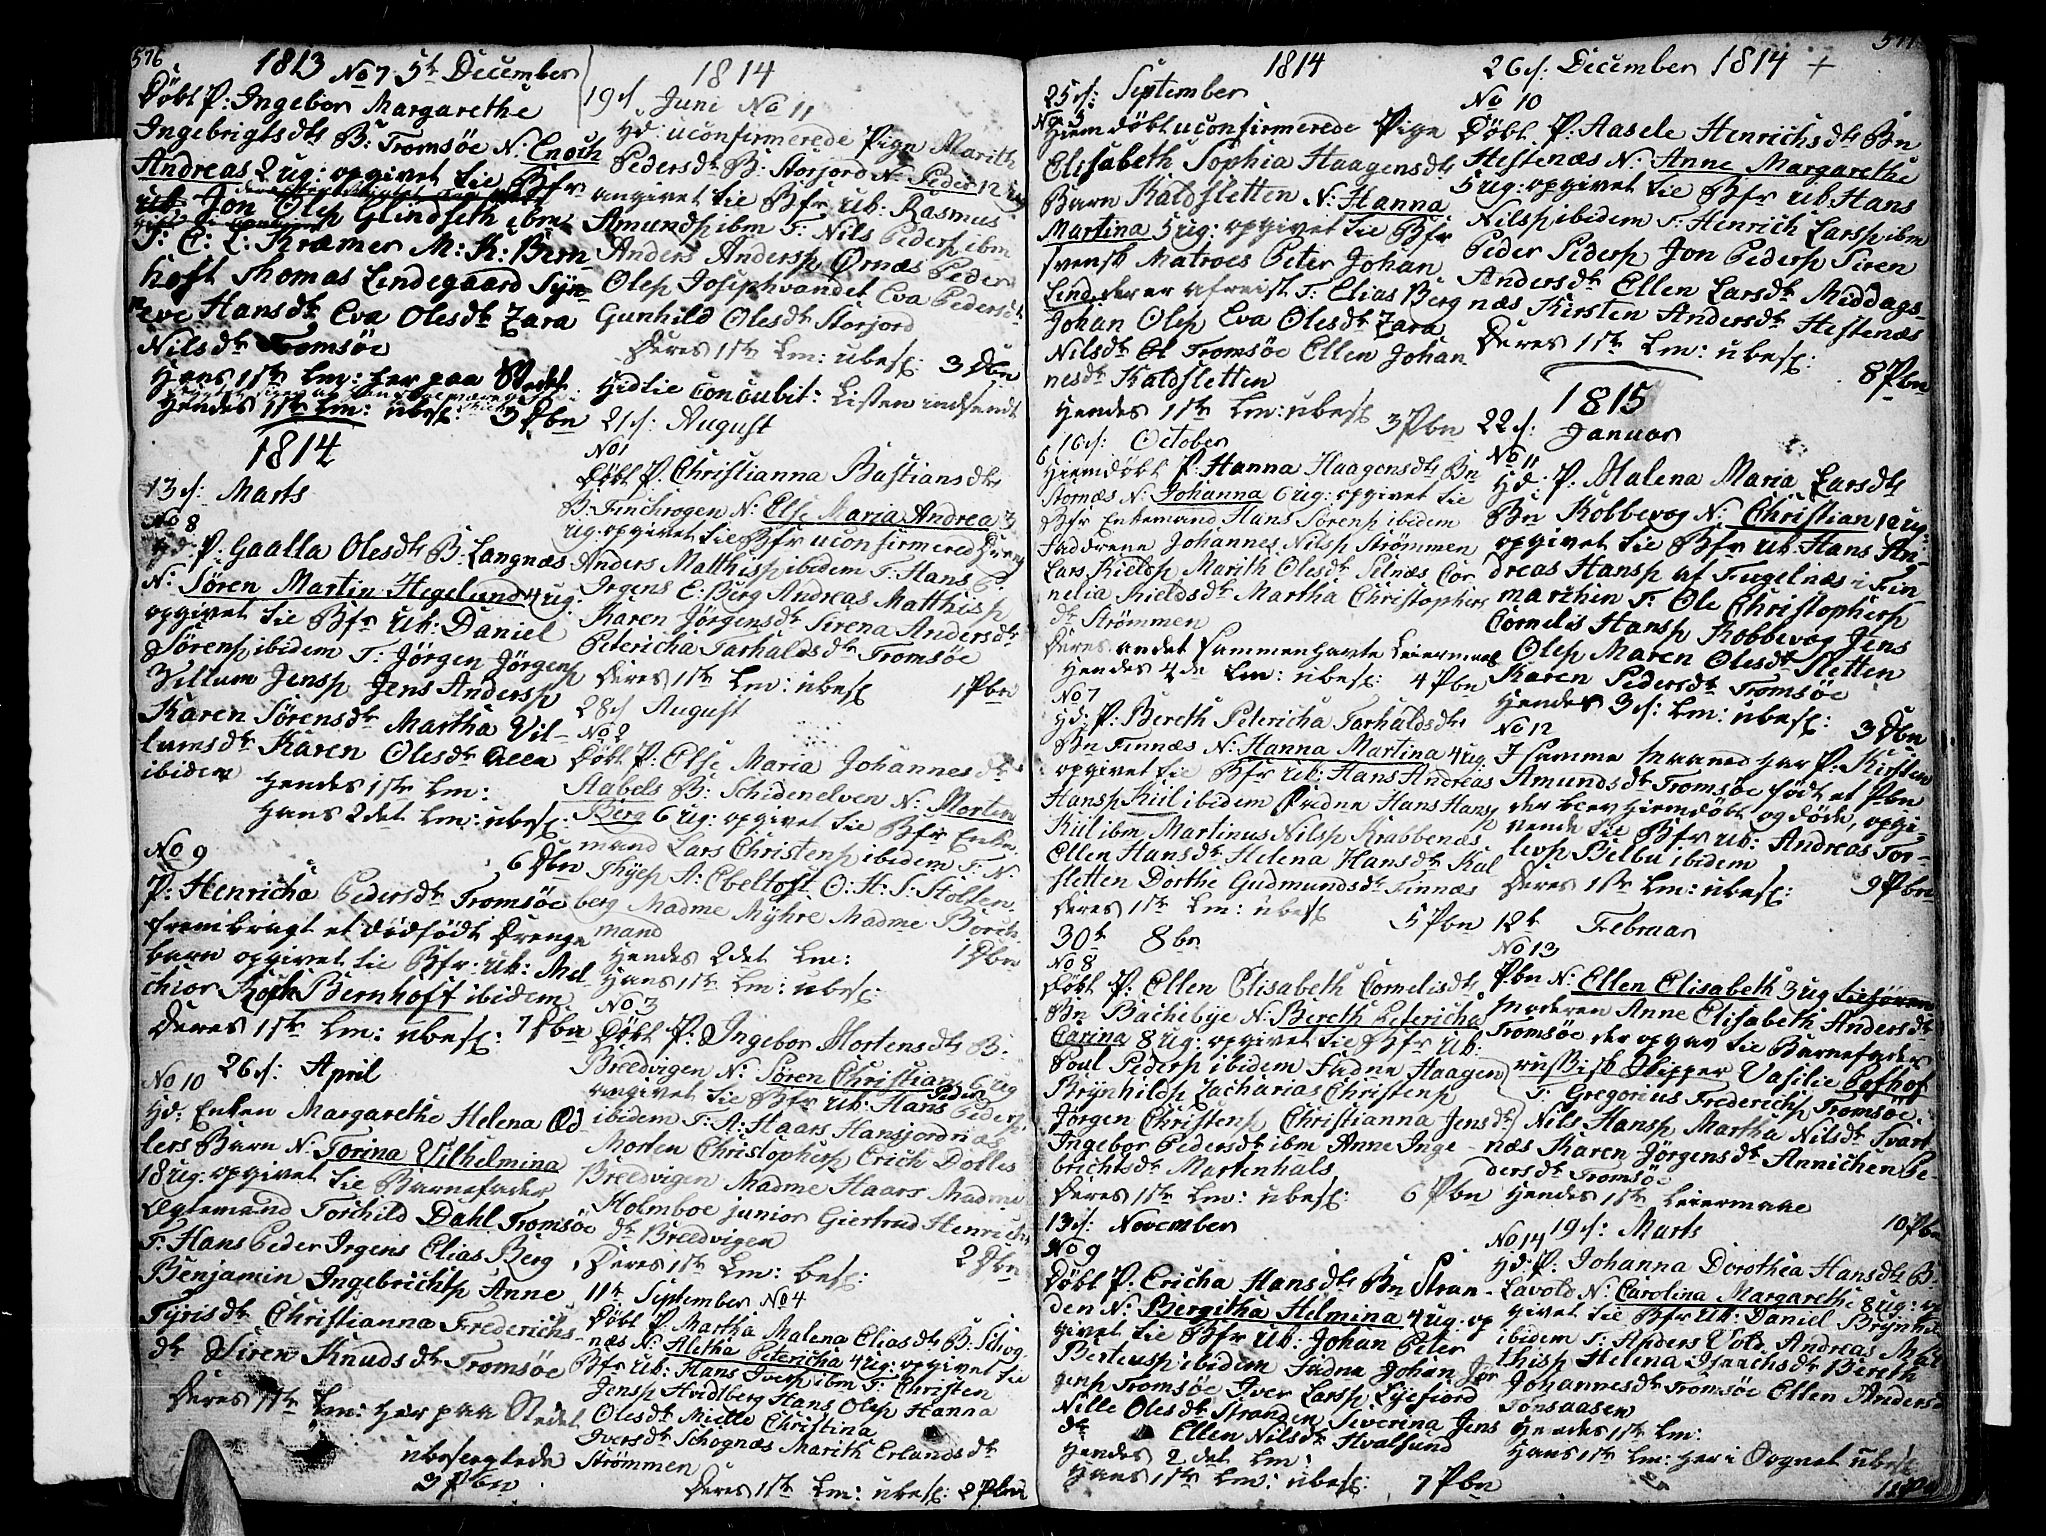 576
1813 No 7. 5te December
Døbt P: Ingebor Margarethe
Ingebrigtsdtr B: Tromsöe N: Enoch
Andreas 2 ug: opgivet til Bfr
ub Jon Olsp Glindseth ibm
T: C: L: Kræmer M: K: Birn
hoft Thomas Lindegaard Syn-
eve Hansdtr Eva Olesdtr Zara
Nilsdtr Tromsöe
Hans 1ste Lm: her paa Stedet
Hendes 1ste Lm: ubes: 3 Dbn
1814
13 s: Marts
No 8
Hd: P: Gaalla Olesdtr B: Langnæs
N: Sören Martin Hegelund 4 ug:
opgivet til Bfr Ub: Daniel
Sörensp ibidem T: Jörgen Jörgensp
Villum Jensp Jens Andersp
Karen Sörensdtr Martha Vil-
lumsdtr Karen Olesdtr alle
ibidem
Hendes 1ste Lm:
Hans 2det Lm: ubes:
6 Dbn
No 9
P: Henricha Pedersdtr Tromsöe
frembragt et dödfödt Drenge
barn opgivet til Bfr: Ub: Mel
chior Koch Bernhoft ibidem
Deres 1ste Lm: ubes: 7 Dbn
26 s: April
No 10
Hd: Enken Margarethe Helena Od
lers Barn N: Torina Vilhelmina
18 ug: opgivet til Barnefader
Egtemand Torchild Dahl Tromsöe
T: Hans Peder Irgens Elias Berg
Benjamin Ingebrichtsp Anne
Tyrisdtr Christianna Frederichs-
dtr Siren Knudsdtr Tromsöe
Deres 1ste Lm: her paa Stedet
ubesvogtede
2 Pbn
1814
19 s. Juni No 11
Hd: uconfirmerede Pige Marith
Pedersdtr B: Storjord N: Peder 12 ug
angivet til Bfr Ub: Rasmus
Amundsp ibm T: Nils Pedersp ibm
Anders Andersp Örnæs Peder
Olsp Josephvandet Eva Pedersdtr
Gunhild Olesdtr Storjord
Deres 1ste Lm: ubes: 3 Dbn
Hidtil concubit: Listen indsendt
21 s: August
No 1
Döbt P. Christianna Bastiansdtr
B: Finchrogen N: Else Maria Andrea 3
ug: opgivet til Bfr uconfirmered Dreng
Anders Matthisp ibidem T: Hans P.
Irgens E: Berg Andreas Matthisp
Karen Jörgensdtr Sirena Andersdtr
Petericha Tarhaldsdtr Tromsöe
Deres 1ste Lm: ubes: 1 Pbn
28 s August
No 2
Döbt P: Else Maria Johannesdtr
Aabels B: Schidenelven N: Morten
Berg 6 ug: opgivet til Bfr Enke
mand Lars Christensp ibidem T: N:
Thyesp A: Ebeltoft O: H: S: Stolten
berg Madme Myhre Madme Borch
mand
Hendes 2det Lm: 1 Dbn
Hans 1ste Lm: ubes:
No 3
Döbt P: Ingebor Mortensdtr B:
Bredvigen N: Sören Christian 6 ug
angivet til Bfr Ub: Hans Pedersp
ibidem T: A: Haars Hansjordnæs
Morten Christophersp Erich Dolles
Bredvigen Madme Haars Madme
Holmboe junior Giertrud Henrichs
dtr Bredvigen
Deres 1ste Lm: bes: 2 Dbn
11te September No 4
Döbt P. Martha Malena Eliasdtr B. Schog
næs N: Aletha Petericha 4 ug: opgivet til
Bfr Ub: Hans Iversp ibm T: Christen
Jensp Hvidtberg Hans Olsp Hanna
Olesdtr Mielle Christina
Iversdtr Schognæs Marith Erlandsdtr
Strömmen
Deres 1ste Lm: ubes: 2 Pbn
1814
25 s: September
No 5
Hiemdöbt uconfirmerede Pige
Elisabeth Sophia Haagensdtr
Barn Kaldsletten N: Hanna
Martina 5 ug: opgivet til Bfr
svensk Matroes Peter Johan
Lind, der er afreist T: Elias Berg
Johan Olsp Eva Olesdtr Zara
Nilsdtr Tromsöe Ellen Johan
nesdtr Kaldsletten
Hendes 1ste Lm: ubes: 3 Pbn
16 s: October
6 Hiemdöbt P: Hanna Haagensdtr Bn
Stornæs N: Johanna 6 ug: opgivet til
Bfr Enkemand Hans Sörensp ibidem
Faddrene Johannes Nilsp Strömmen
Lars Kieldsp Marith Olesdtr Selnæs Cor
nelia Kieldsdtr Martha Christophers
dtr Strömmen
Deres andet sammen havte Leiermaal
Hendes 4de Lm: ubes: 4 Pbn
No 7
Hd: P: Bereth Petericha Tarhaldsdtr
Bn Finnæs N: Hanna Martina 4 ug
opgivet til Bfr Ub: Hans Andreas
Hansp Kiil ibidem Fadne Hans Hansp
Kiil ibm Martinus Nilsp Krabbenæs
Ellen Hansdtr Helena Hansdtr Kal
sletten Dorthe Gudmundsdtr Finnæs
Deres 1ste Lm: ubes: 5 Pbn
30te 8br
No 8
Döbt P: Ellen Elisabeth Cornelisdtr
Bn Bachebye N: Bereth Petericha
Carina 8 ug: opgivet til Bfr Ub:
Poul Pedersp ibidem Fadne Haagen
Brynhildsp Zacharias Christensp
Jörgen Christensp Christianna Jensdtr
Ingebor Pedersdtr ibm Anne Inge-
brichtsdtr Martenhals
Deres 1ste Lm: ubes: 6 Pbn
13 s: November
No 9
Döbt P. Ericha Hansdtr Bn Stran-
den N: Bergitha Helmina 4 ug: op
givet til Bfr Ub: Johan Peter
Bertensp ibidem Fadne Johan Jör
gensp Tromsöe Iver Larsp Lyefiord
Nille Olesdtr Stranden Severina Jens
dtr Ellen Nilsdtr Hvalsund
Hendes 2det Lm:
Hans 1ste Lm: ubes: 7 Pbn
577
26 s: December 1814
No 10
Döbt. P. Aasele Henrichsdtr Bn
Hestenæs N: Anne Margarethe
5 ug: opgivet til Bfr Ub: Hans
Nilsp ibidem T: Henrich Larsp ibm
Peder Pedersp Jon Pedersp Siren
Andersdtr Ellen Larsdtr Middags-
næs Kirsten Andersdtr Hestenæs
Deres 1ste Lm: ubes:
8 Pbn
1815
22 s: Januar
No 11
Hd: P. Malena Maria Larsdtr
Bn Kobbevog N: Christian 10 ug:
opgivet til Bfr Ub: Hans An-
dreas Hansp af Fugelnæs i Fin
marchen T: Ole Christophersp
Cornelis Hansp Kobbevog Jens
Olsp Maren Olesdtr Sletten
Karen Pedersdtr Tromsöe
Hendes 3 s: Lm: ubes: 3 Dbn
No 12
I samme Maaned har P: Kirsten
Amundsdtr Tromsöe födt et Pbn
der blev hiemdöbt og döde, opgi-
vende til Bfr Ub: Andreas Tor-
levsp Bielbu ibidem
Deres 1ste Lm: ubes: 9 Pbn
12te Februar
No 13
Pbn N: Ellen Elisabeth 3 ug
Moderen Anne Elisabeth Andersdtr
Tromsöe der opgav til Barnefader
russisk Skipper Vasilie
T: Gregorius Frederichsp Tromsöe
Nils Hansp Martha Nilsdtr Svart
næs Karen Jörgensdtr Annichen Pe-
dersdtr Tromsöe
Hendes 1ste Leiermaal
10 Pbn
19 s: Marts
No 14
Hd: P: Johanna Dorothea Hansdtr B:
Lavold N: Carolina Margarethe 8 ug: op
givet til Bfr Ub: Daniel Brynhild
ibidem T: Anders Vold Andreas Mat
thisp Helena Henrichsdtr Bereth
Johannesdtr Tromsöe Ellen Andersd
Tonsaasen
Hendes 1ste Lm:
Hans 1ste Lm: her i Sognet ubes:
11 Pbn